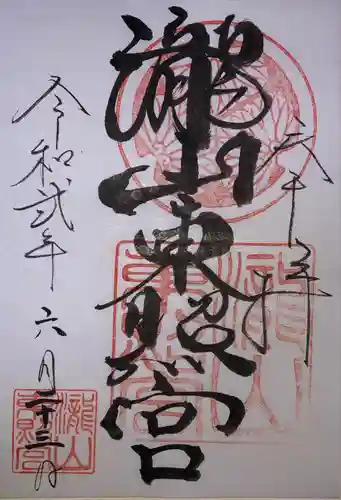 瀧山東照宮
令和弐年六月二十三日
瀧山
東照宮
瀧山
東照宮